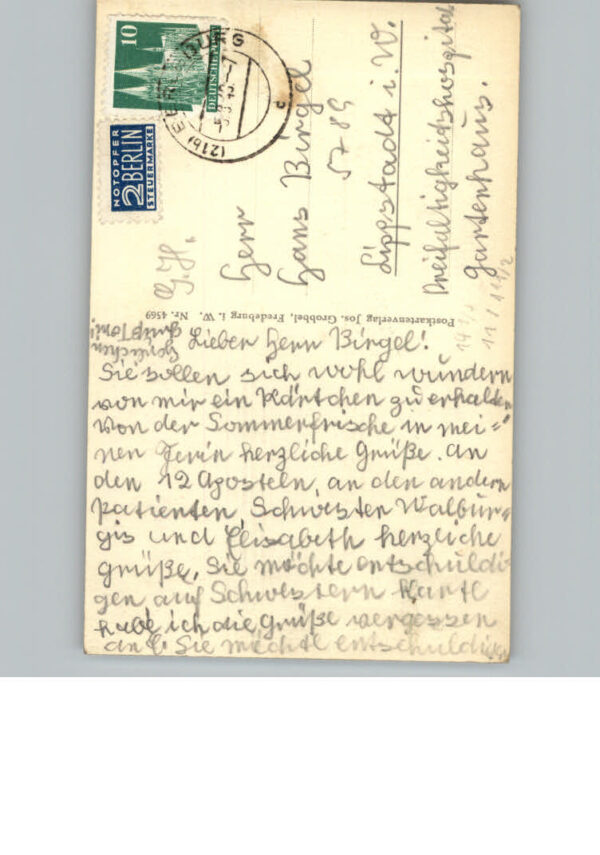 10
DEUTSCHE POST
NOTOPFER
2 BERLIN
STEUERMARKE
(21b)
c
Herr
Hans Birgel
5789
Lippstadt i. W.
Dreifaltigkeitshospital
Gartenhaus.
G. H.
Postkartenverlag Jos. Grobbel, Fredeburg i. W. Nr. 4569
Lieber Herr Birgel!
Sie sollen sich wohl wundern
von mir ein Kärtchen zu erhalten
von der Sommerfrische in mei=
nen Ferin herzliche Grüße. an
den 12 Aposteln, an den andern
patienten, Schwesten Walbur=
gis und Elisabeth herzliche
grüße, Sie möchte entschuldi
gen auf Schwestern Kartl
habe ich die Grüße vergessen
an E. Sie möchtl entschuldigen
Herzlichen
Gruß Toni!